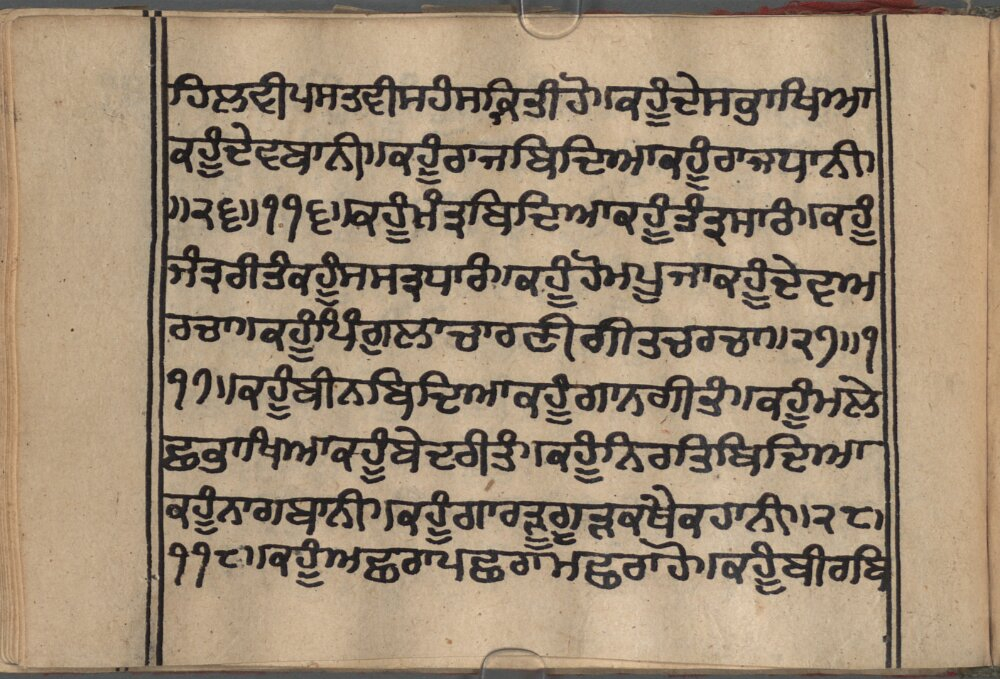 ਹਿਲਵੀਪਸਤਵੀਸਹੰਸਕ੍ਰਿਤੀਹੋ॥ਕਹੂੰਦੇਸਭਾਖਿਆ
ਕਹੂੰਦੇਵਬਾਨੀ॥ਕਹੂੰਰਾਜਬਿਦਿਆਕਹੂੰਰਾਜਧਾਨੀ
॥੨੬॥੧੧੬॥ਕਹੂੰਮੰਤ੍ਰਬਿਦਿਆਕਹੂੰਤੰਤ੍ਰਸਾਰੰ॥ਕਹੂੰ
ਜੰਤ੍ਰਰੀਤੰਕਹੂੰਸਸਤ੍ਰਧਾਰੰ॥ਕਹੂੰਹੋਮਪੂਜਾਕਹੂੰਦੇਵਅ
ਰਚਾ॥ਕਹੂੰਪਿੰਗੁਲਾਚਾਰਣੀਗੀਤਚਰਚਾ॥੨੭॥੧
੧੭॥ਕਹੂੰਬੀਨਬਿਦਿਆਕਹੂੰਗਾਨਗੀਤੰ॥ਕਹੂੰਮਲੇ
ਛਭਾਖਿਆਕਹੂੰਬੇਦਰੀਤੰ॥ਕਹੂੰਨਿਰਤਿਬਿਦਿਆ
ਕਹੂੰਨਾਗਬਾਨੀ॥ਕਹੂੰਗਾਰੜੂਗੂੜਕਥੈਕਹਾਨੀ॥੨੮॥
੧੧੮॥ਕਹੂੰਅਛਰਾਪਛਰਾਮਛਰਾਹੋ॥ਕਹੂੰਬੀਰਬਿ